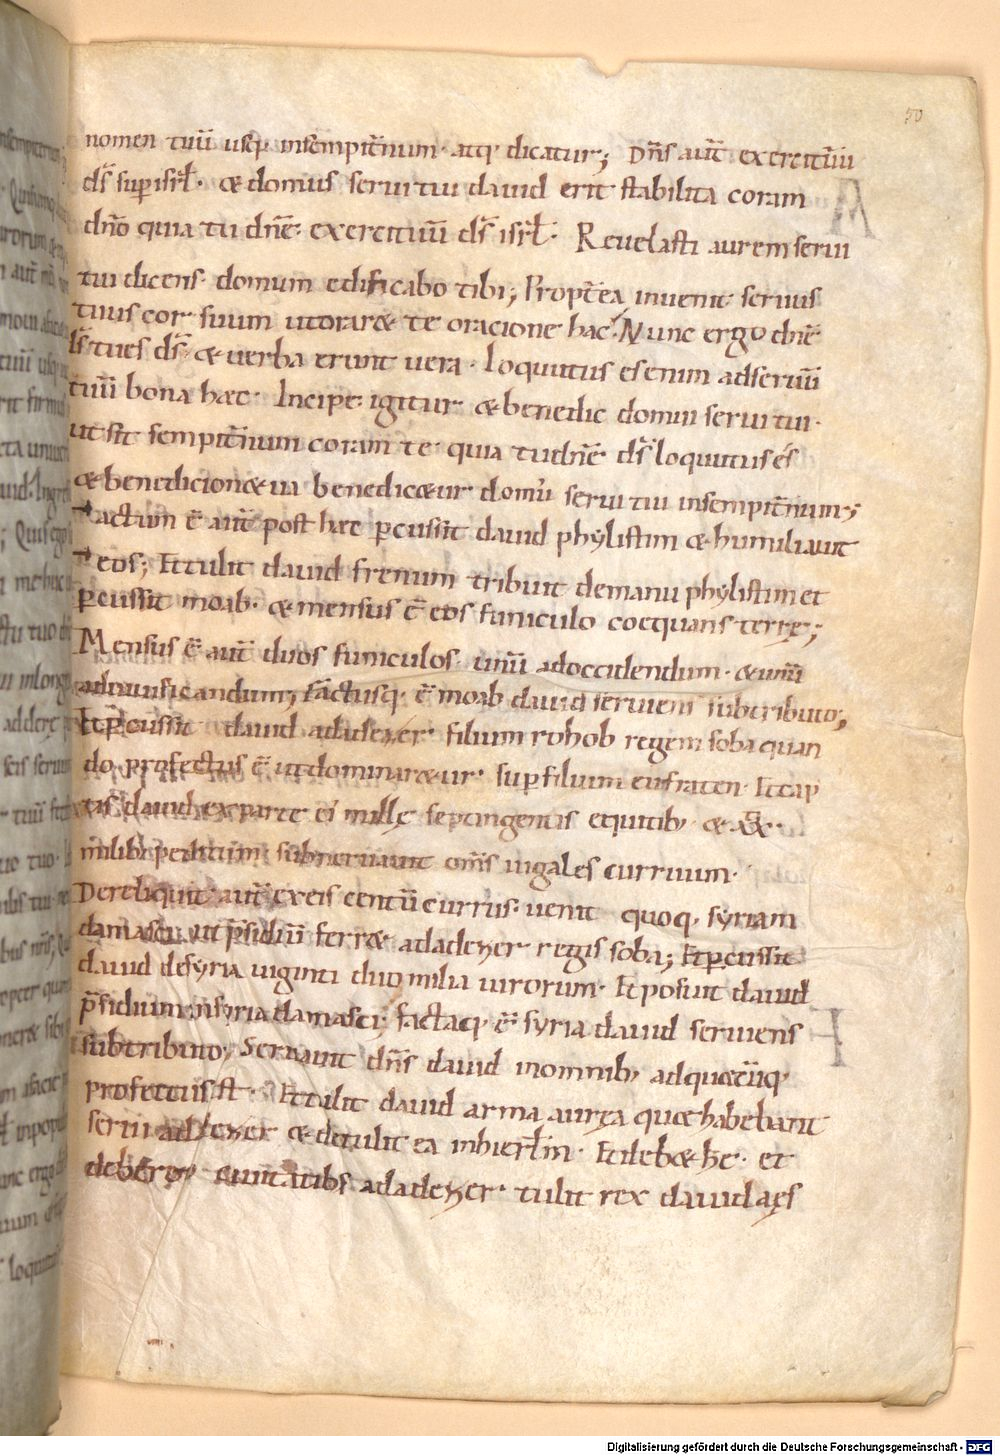 50
nomen tuū usq; insempit̄num· atq; dicatur; Dn̄s aut̄ exercituū
ds̄ sup isrł· & domus serui tui dauid erit stabilita coram
dn̄o quia tu dn̄e· exercituū ds̄ isrł· Reuelasti aurem serui
tui dicens· domum edificabo tibi; Propt̄ea inuenit seruus
tuus cor suum ut orar& te oracione hac· Nunc ergo dn̄e
ds̄ tu es ds̄· & uerba erunt uera· loquutus es enim ad seruū
tuū bona haec· Incipe igitur & benedic domui serui tui·
ut sit sempit̄num coram te· quia tu dn̄e ds̄ loquutus es
& benedicione tua benedic&ur domui serui tui insempit̄num;
Factum ē aut̄ post haec p̄cussit dauid phylistim & humiliauit
eos; Et tulit dauid frenum tributi demanu phylistim et
p̄cussit moab· & mensus ē eos funiculo coequans terrę;
Mensus ē aut̄ duos funiculos· unū adoccidendum· & unū
aduiuificandum; Factusq; ē moab dauid seruiens subtributo;
Et p̄cussit dauid adadezer· filium rohob regem soba quan
do profectus ē ut dominar&ur· sup filium eufraten· Et cap
tis dauid exparte ei mille septingentis equitib; & xx·
milib; peditum subneruauit om̄s iugales curruum·
Dereliquit aut̄ exeis centū currus· uenit quoq; syriam
damasci ut p̄sidiū ferr& adadezer regis soba; Et p̄cussit
dauid desyria uiginti duo milia uirorum· Et posuit dauid
p̄sidium insyria damasci; factaq; ē syria dauid seruiens
subtributo; Seruauit dn̄s dauid inomnib; adquaecūq;
profectus ē· Et tulit dauid arma aurea quae habebant
serui adadezer & detulit ea inhierłm· Et debetke· et
deberoth ciuitatibs adadezer· tulit rex dauid aes
Digitalisierung gefördert durch die Deutsche Forschungsgemeinschaft - DFG